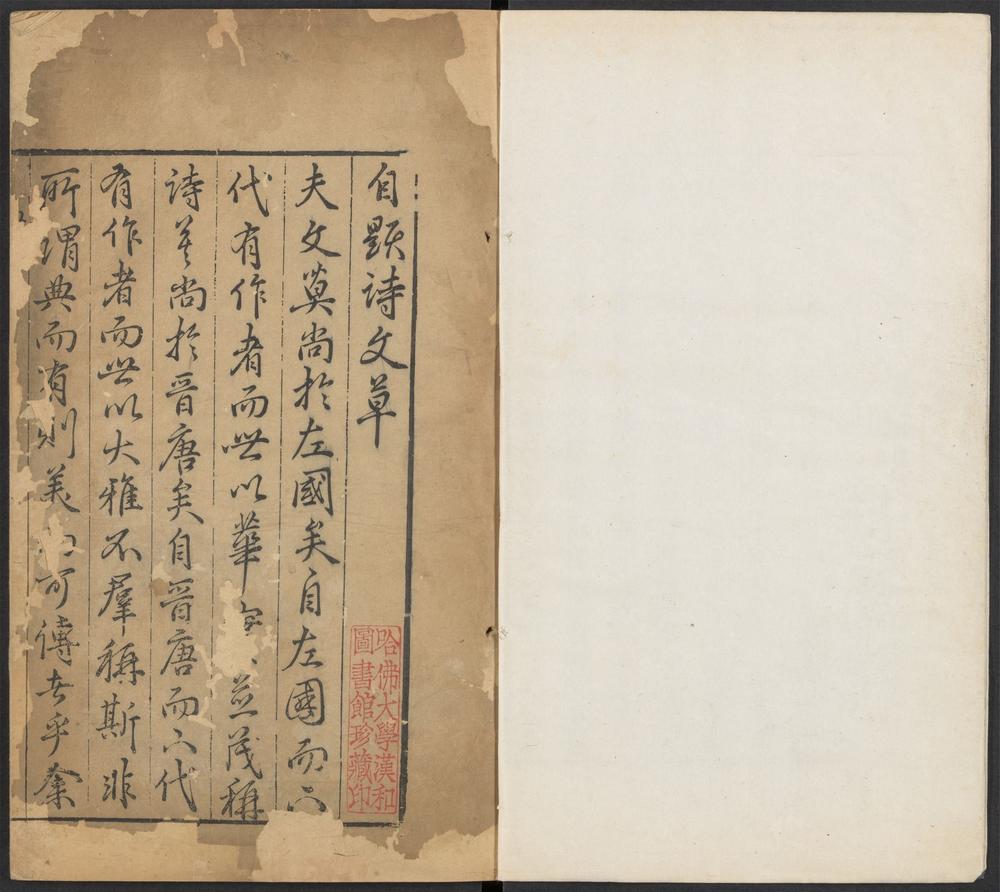 自題詩文草
夫文莫尚於左國矣自左國而六
代有作者而世以華實並茂稱
詩莫尚於晉唐矣自晉唐而六代
有作者而世以大雅不羣稱斯非
所謂典而有則美而可傳者乎余
哈佛大學漢和
圖書館珍藏印